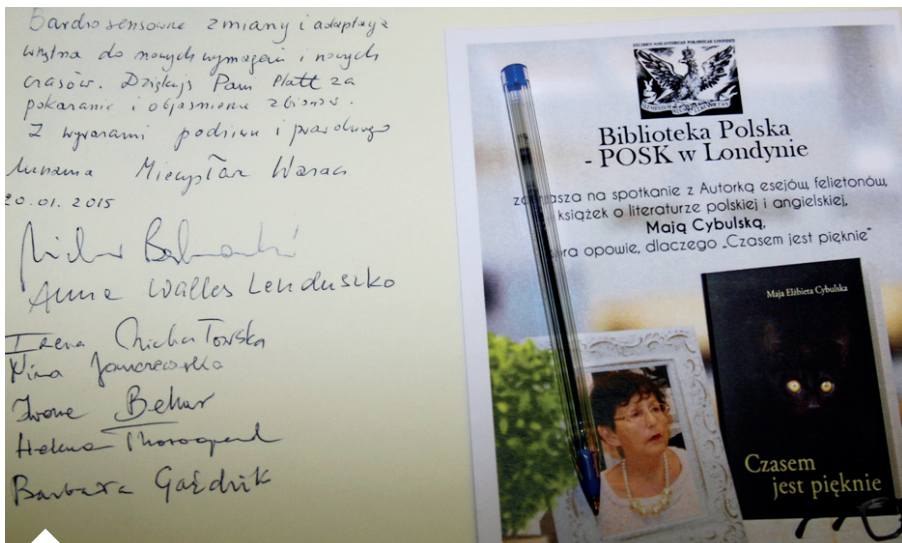 Bardzo sensowne zmiany i adaptacja
do nowych wymagań i nowych
czasów. Dziękuję Pani Platt za
pokazanie i objaśnienie zbiorów.
Z wyrazami podziwu i prawdziwego
uznania Mieczysław
20.01.2015
Anna Walles Lenduszko
Irena Michałowska
Nina
Iwona
Helena
Barbara Gaździk
Biblioteka Polska
- POSK w Londynie
na spotkanie z Autorką esejów, felietonów,
książek o literaturze polskiej i angielskiej,
Mają Cybulską,
opowie, dlaczego „Czasem jest pięknie”
Maja Elżbieta Cybulska
Czasem
jest pięknie